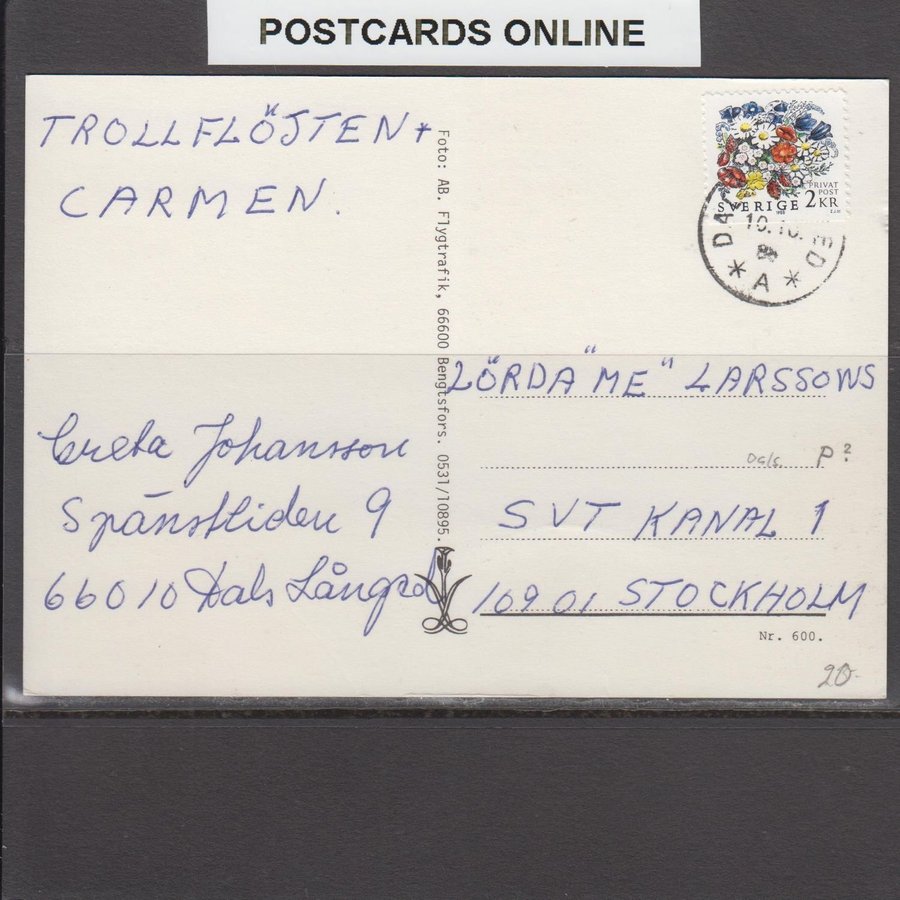 POSTCARDS ONLINE
TROLLFLÖJTEN +
CARMEN.
Greta Johansson
Spänstliden 9
66010 Dals Långed
Foto: AB. Flygtrafik, 66600 Bengtsfors. 0531/10895.
PRIVAT
POST
SVERIGE 2 KR
10.10.
* A *
LÖRDA "ME" LARSSONS
P²
SVT KANAL 1
10901 STOCKHOLM
Nr. 600.
20-